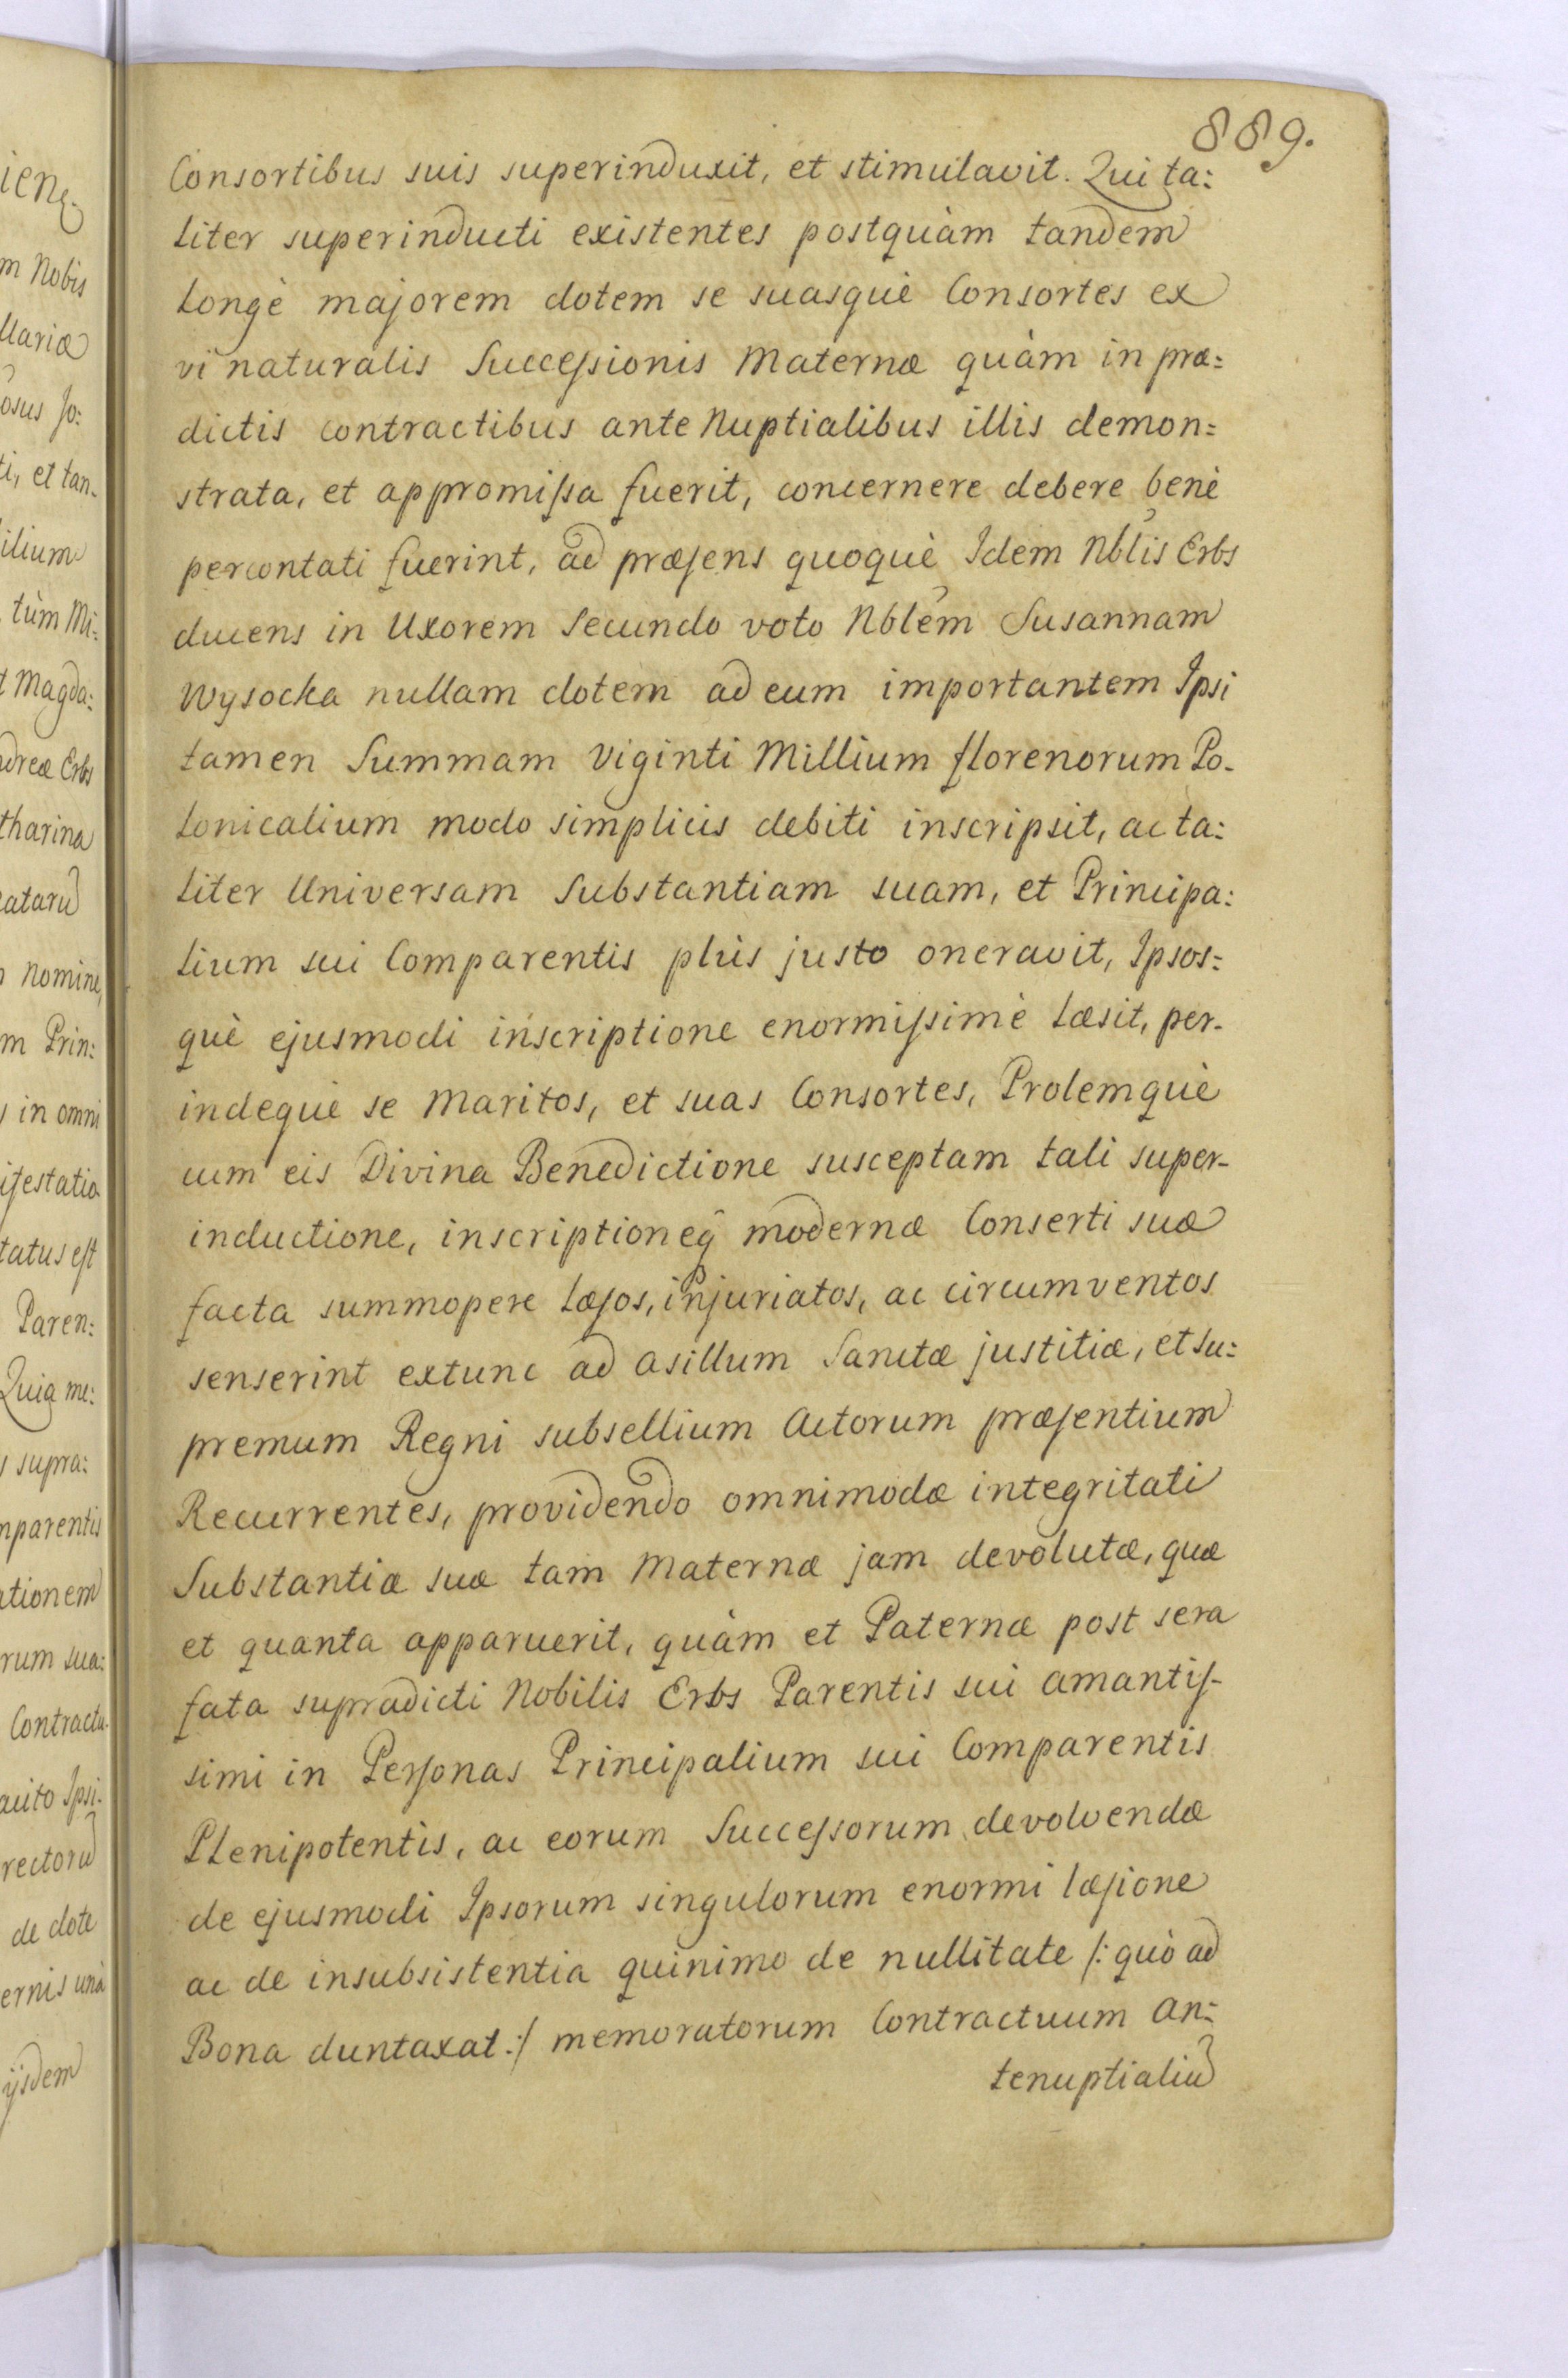 889.
Consortibus suis superinduxit, et stimulavit. Qui ta:
liter superinducti existentes postquàm tandem
longè majorem dotem se suasquè Consortes ex
vi naturalis Succeſsionis Maternæ quàm in præ:
dictis contractibus ante Nuptialibus illis demon:
strata, et appromiſsa fuerit, concernere debere benè
percontati fuerint, ad præſens quoquè Idem Nblis Erbs
ducens in Uxorem Secundo voto Nblem Susannam
Wysocka nullam dotem ad eum importantem Ipsi
tamen Summam Viginti Millium florenorum Po-
lonicalium modo simplicis debiti inscripsit, ac ta:
liter Universam Substantiam suam, et Principa:
lium sui Comparentis plùs justo oneravit, Ipsos:
què ejusmodi inscriptione enormiſsimè læsit, per-
indequè se Maritos, et suas Consortes, Prolemquè
cum eis Divina Benedictione susceptam tali super-
inductione, inscriptioneq̃ modernæ Conserti suæ
facta summopere læſos, injuriatos, ac circumventos
senserint extunc ad asillum Sanctæ justitiæ, et Su:
premum Regni subsellium Actorum præſentium
Recurrentes, providendo omnimodæ integritati
Substantiæ suæ tam Maternæ jam devolutæ, quæ
et quanta apparuerit, quàm et Paternæ post sera
fata supradicti Nobilis Erbs Parentis sui amantiſ-
simi in Perſonas Principalium sui Comparentis
Plenipotentis, ac eorum Succeſsorum devolvendæ
de ejusmodi Ipsorum singulorum enormi læſione
ac de insubsistentia quinimo de nullitate /: quò ad
Bona duntaxat :/ memoratorum Contractuum an:
tenuptialiũ
m Nobis
et tan-
ilium
tùm Mi:
Magda:
dreæ Erbs
tharina
nomine,
m Prin:
in omni
tatus eſt
Paren:
Quia me:
supra:
mparentis
ationem
rum sua:
Contractu-
Ipsi-
rectorũ
de dote
ernis unà
ijsdem